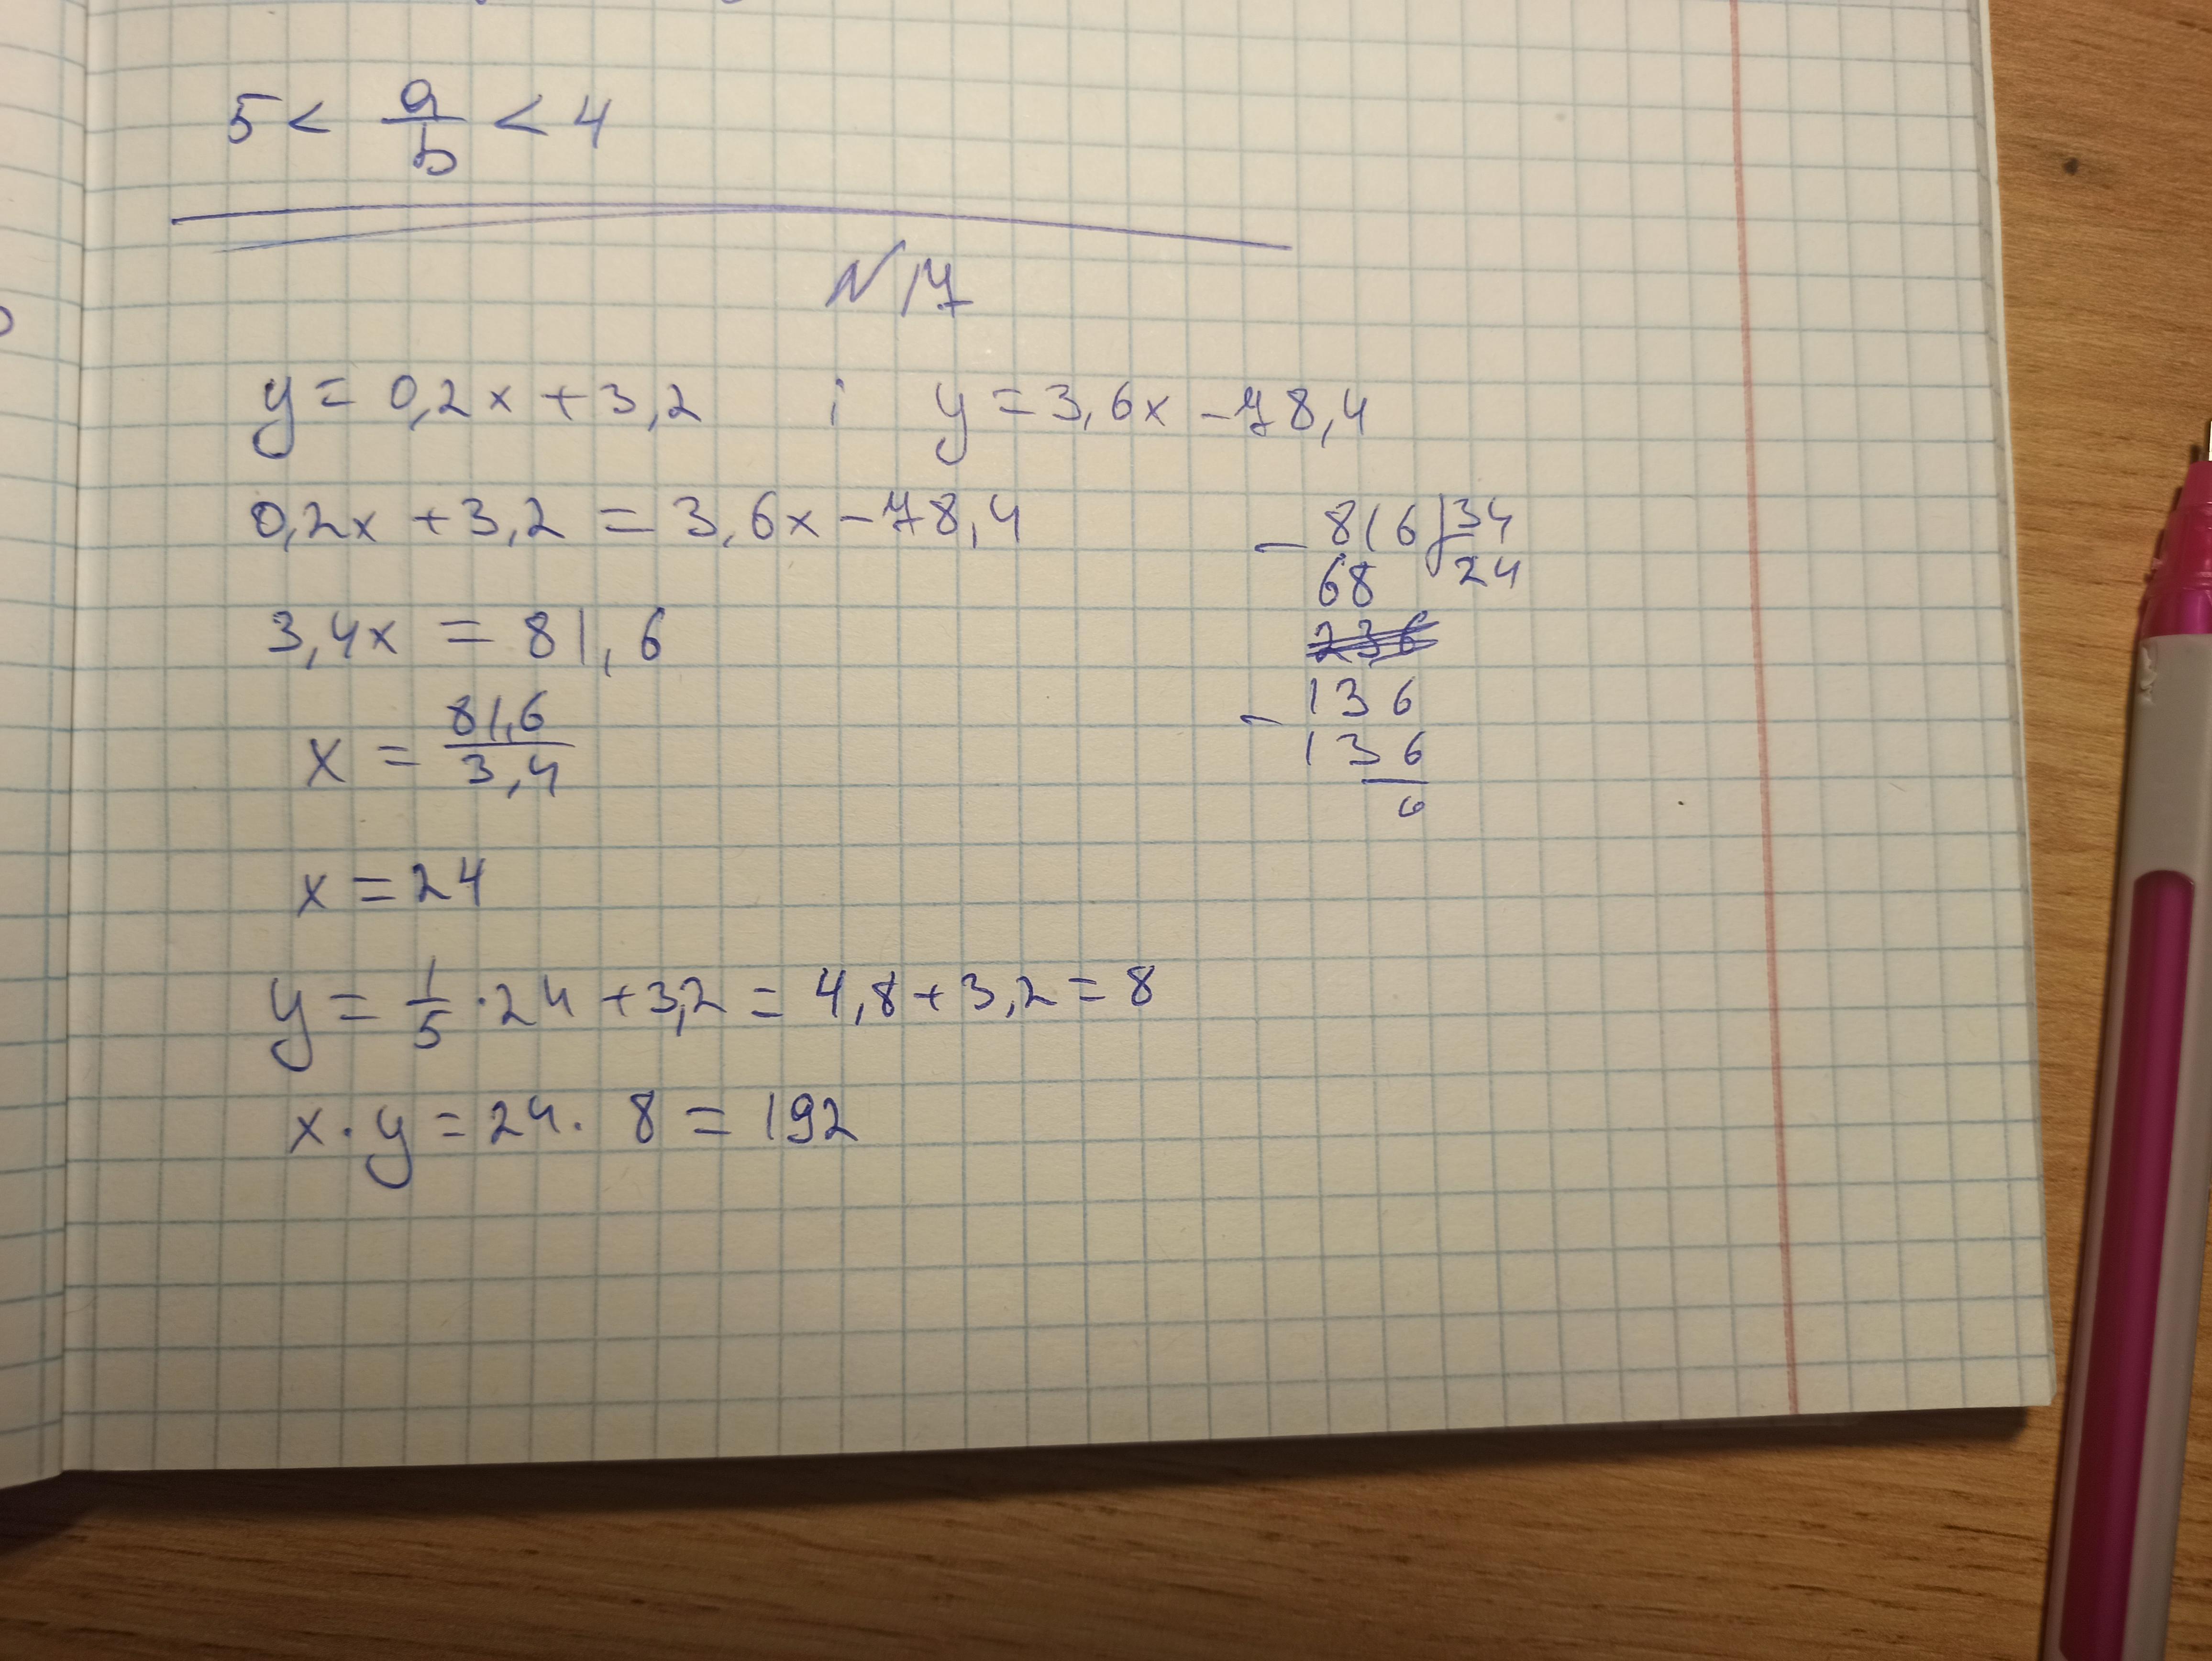 5 < a/b < 4
N 17
y = 0,2x + 3,2 i y = 3,6x - 78,4
0,2x + 3,2 = 3,6x - 78,4
3,4x = 81,6
x = 81,6/3,4
x = 24
y = 1/5 · 24 + 3,2 = 4,8 + 3,2 = 8
x · y = 24 · 8 = 192
- 816 | 34
68 24
- 136
136
0